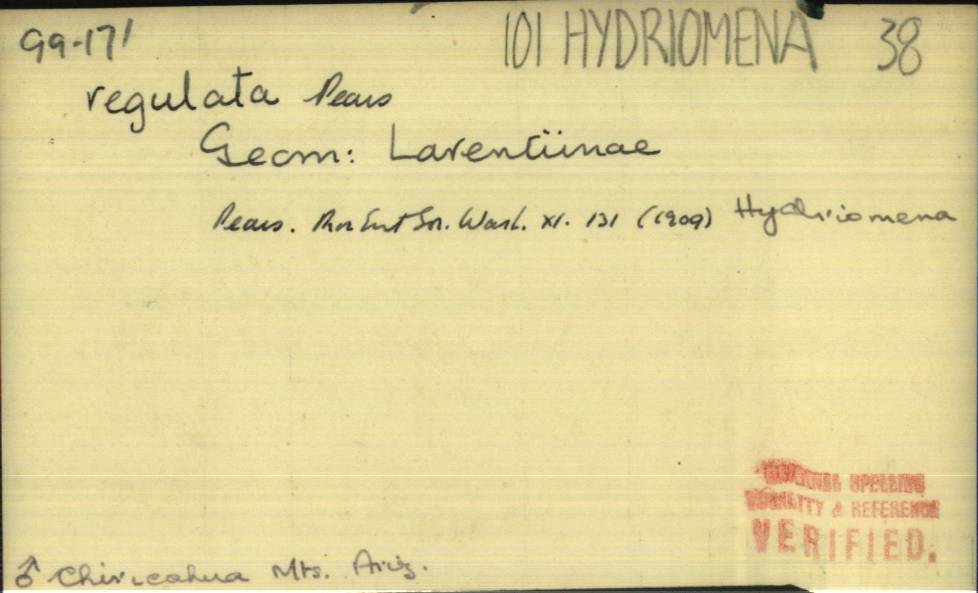 99-17'
101 HYDRIOMENA 38
regulata Pears
Geom: Larentiinae
Pears. Proc Ent Soc. Wash. XI. 131 (1909) Hydriomena
ORIGINAL SPELLING
LOCALITY & REFERENCE
VERIFIED.
♂ Chiricahua Mts. Ariz.